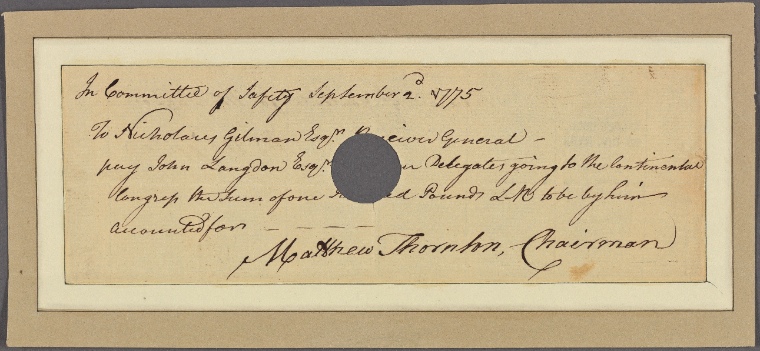 In Committee of Safety September 2d. 1775
To Nicholaus Gilman Esqr. Receiver General –
pay John Langdon Esqr. our Delegates going to the Continental
Congress the Sum of one Pounds L.M to be by him
accounted for – – – –
Matthew Thornton, Chairman